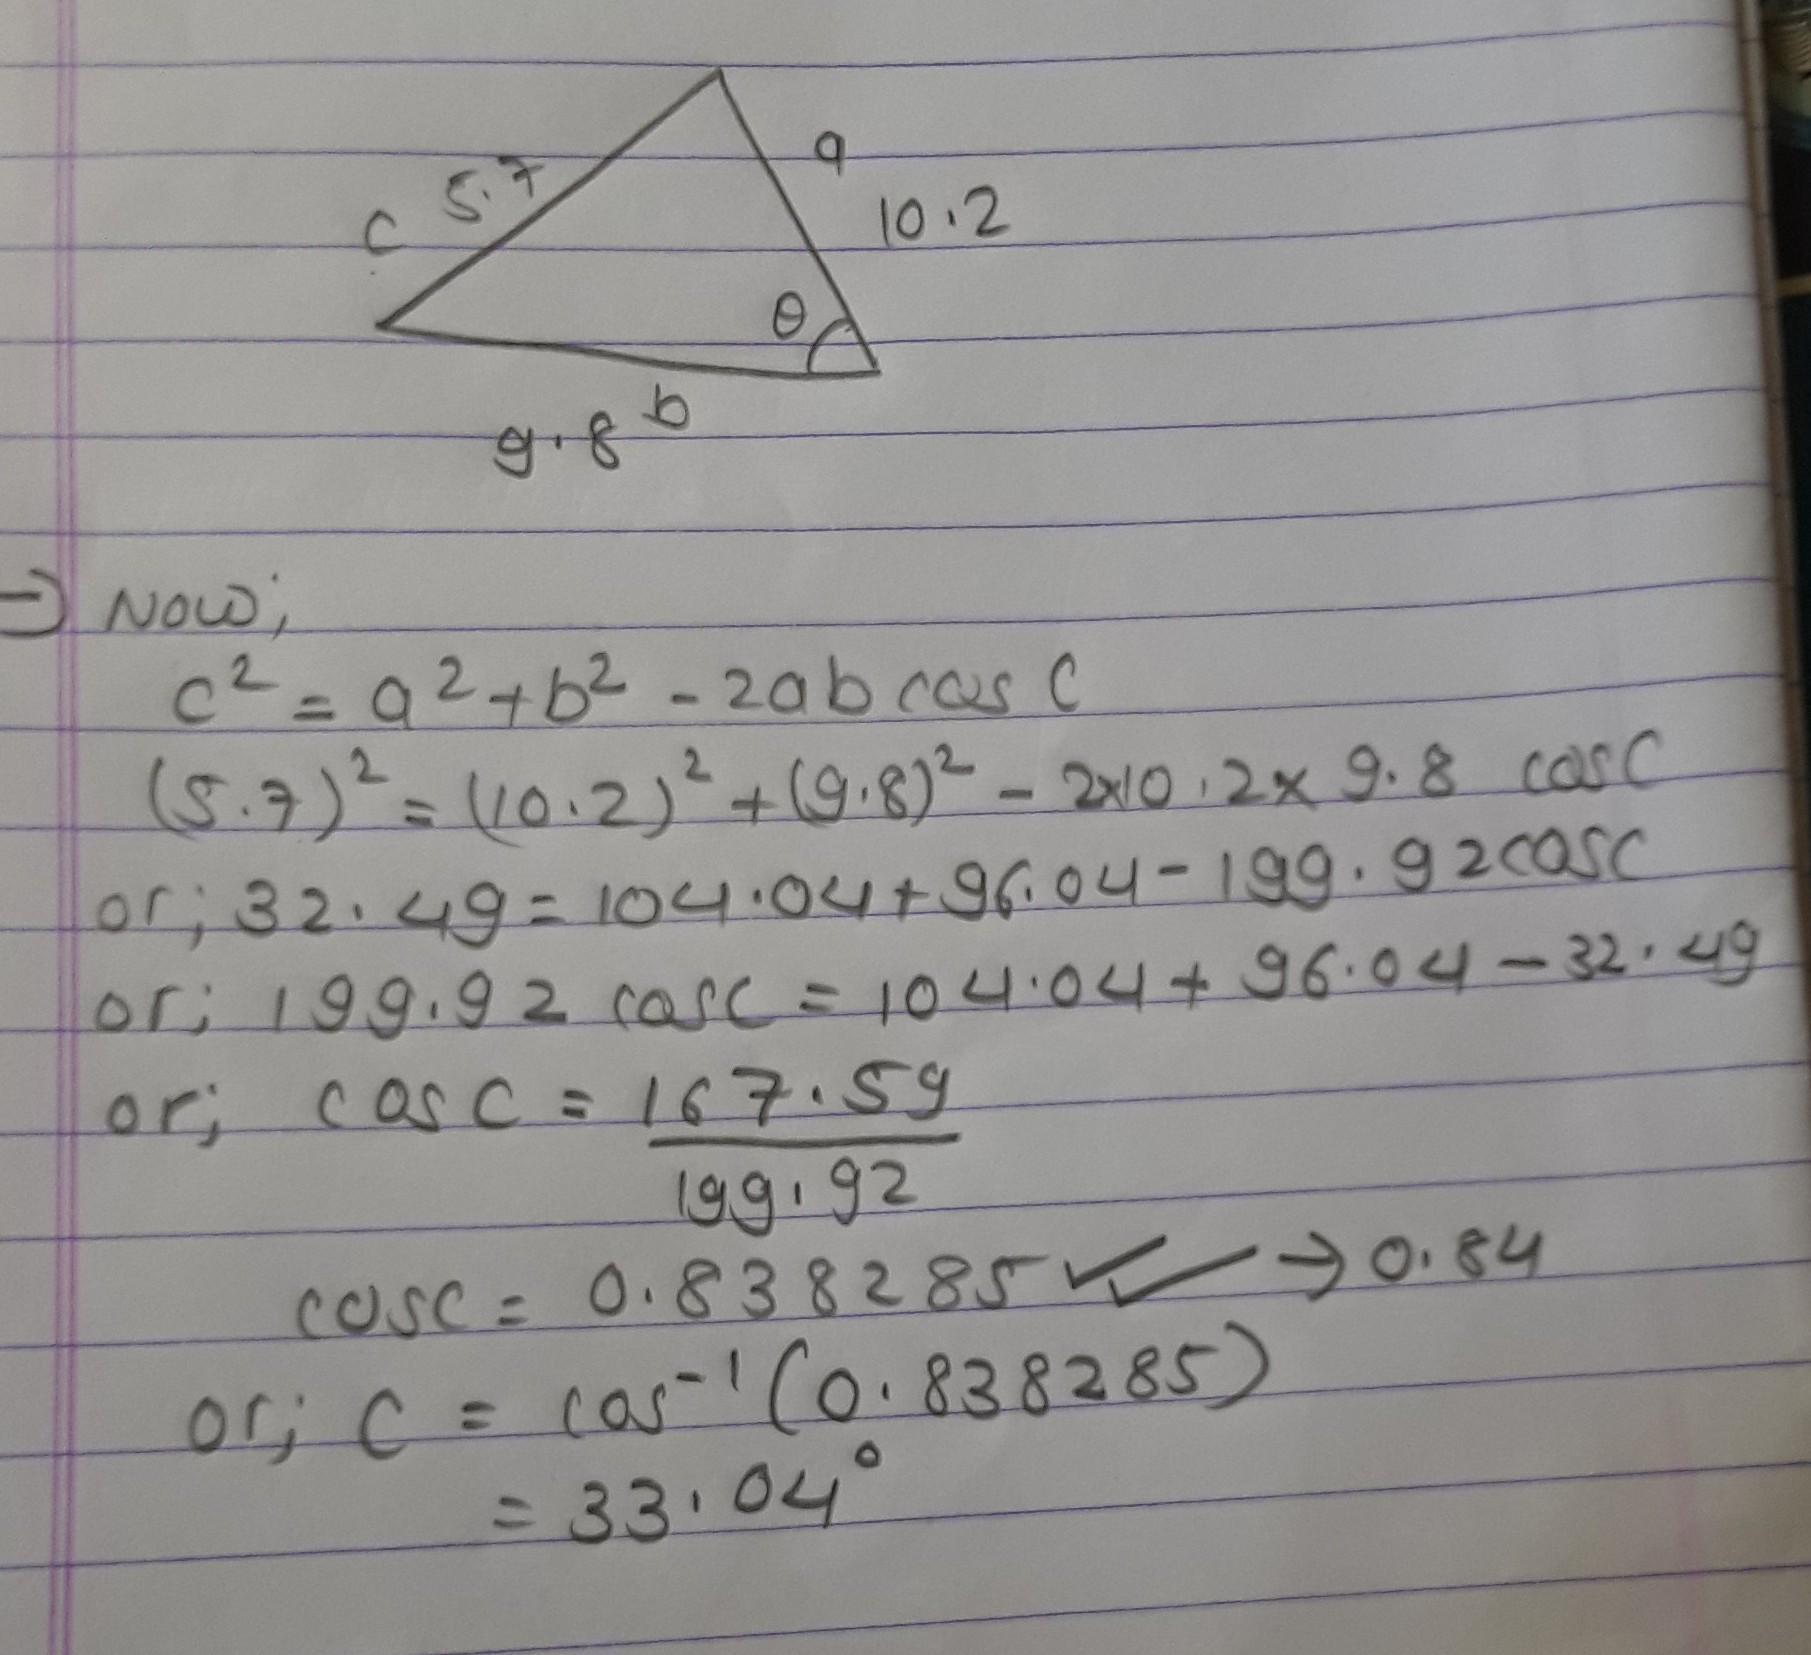 a
c 5.7
10.2
θ
b
9.8
⇒ Now;
c² = a² + b² - 2ab cos C
(5.7)² = (10.2)² + (9.8)² - 2x10.2x 9.8 cosC
or; 32.49 = 104.04 + 96.04 - 199.92 cosC
or; 199.92 cosC = 104.04 + 96.04 - 32.49
or; cosC = 167.59
199.92
cosC = 0.838285 ✓✓ → 0.84
or; C = cos⁻¹(0.838285)
= 33.04°